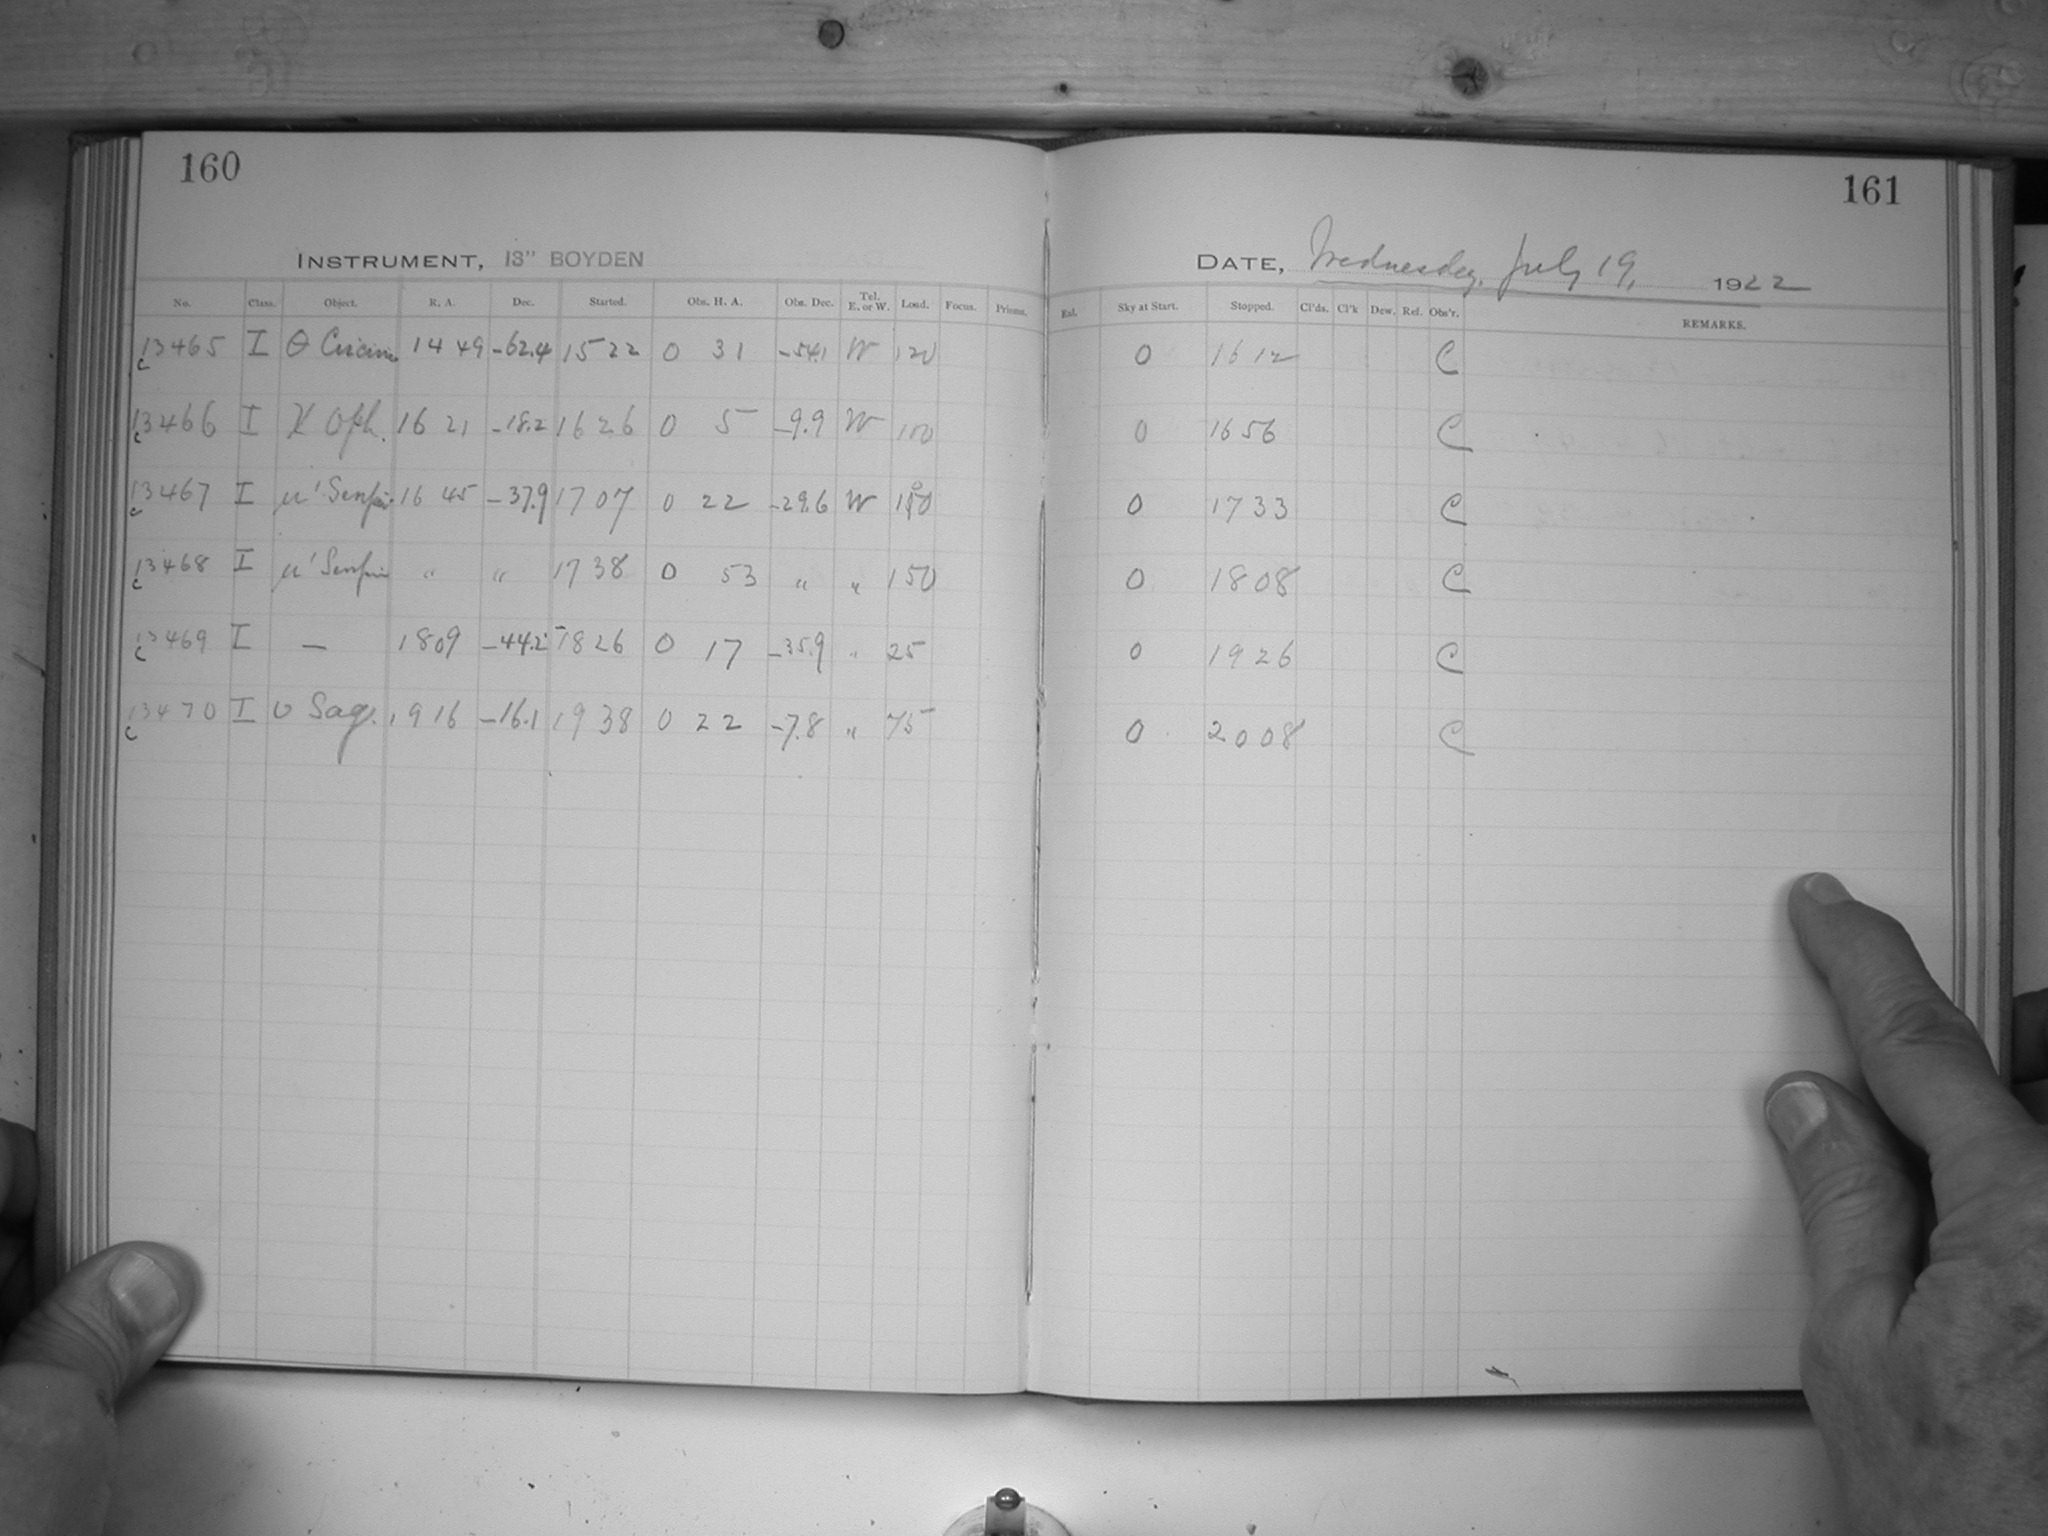 160
161
INSTRUMENT, 13" BOYDEN
DATE, Wednesday, July 19, 1922
No. Class. Object. R. A. Dec. Started. Obs. H. A. Obs. Dec. Tel. E. or W. Load. Focus. Prisms. Exl. Sky at Start. Stopped. Cl'ds. Cl'k Dew. Ref. Obs'r. REMARKS.
C13465 I θ Circini 14 49 -62.4 15 22 0 31 -54.1 W 120 0 16 12 C
C13466 I χ Oph. 16 21 -18.2 16 26 0 5 -9.9 W 100 0 16 56 C
C13467 I μ' Scorpii 16 45 -37.9 17 07 0 22 -29.6 W 0 17 33 C
C13468 I μ' Scorpii " " 17 38 0 53 " " 150 0 18 08 C
C13469 I — 18 09 -44.2 18 26 0 17 -35.9 " 25 0 19 26 C
C13470 I υ Sag. 19 16 -16.1 19 38 0 22 -7.8 " 75 0 20 08 C